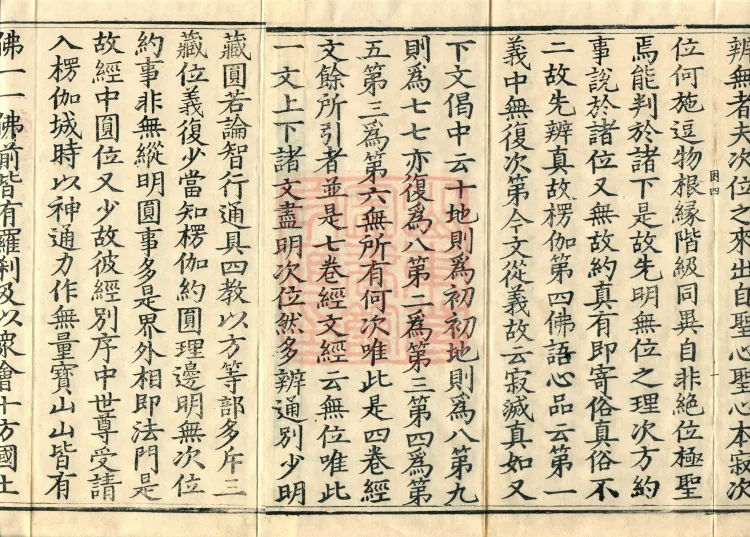 辨無者夫次位之來出自聖心聖心本寂次
位何施逗物根緣階級同異自非絕位極聖
焉能判於諸下是故先明無位之理次方約
事說於諸位又無故約真有即寄俗真俗不
二故先辨真故楞伽第四佛語心品云第一
義中無復次第今文從義故云寂滅真如又
下文偈中云十地則爲初初地則爲八第九
則爲七七亦復爲八第二爲第三第四爲第
五第三爲第六無所有何次唯此是四卷經
文餘所引者並是七卷經文經云無位唯此
一文上下諸文盡明次位然多辨通別少明
藏圓若論智行通具四教以方等部多斥三
藏位義復少當知楞伽約圓理邊明無次位
約事非無縱明圓事多是界外相即法門是
故經中圓位又少故彼經別序中世尊受請
入楞伽城時以神通力作無量寶山山皆有
佛一一佛前皆有羅刹及以眾會十方國土